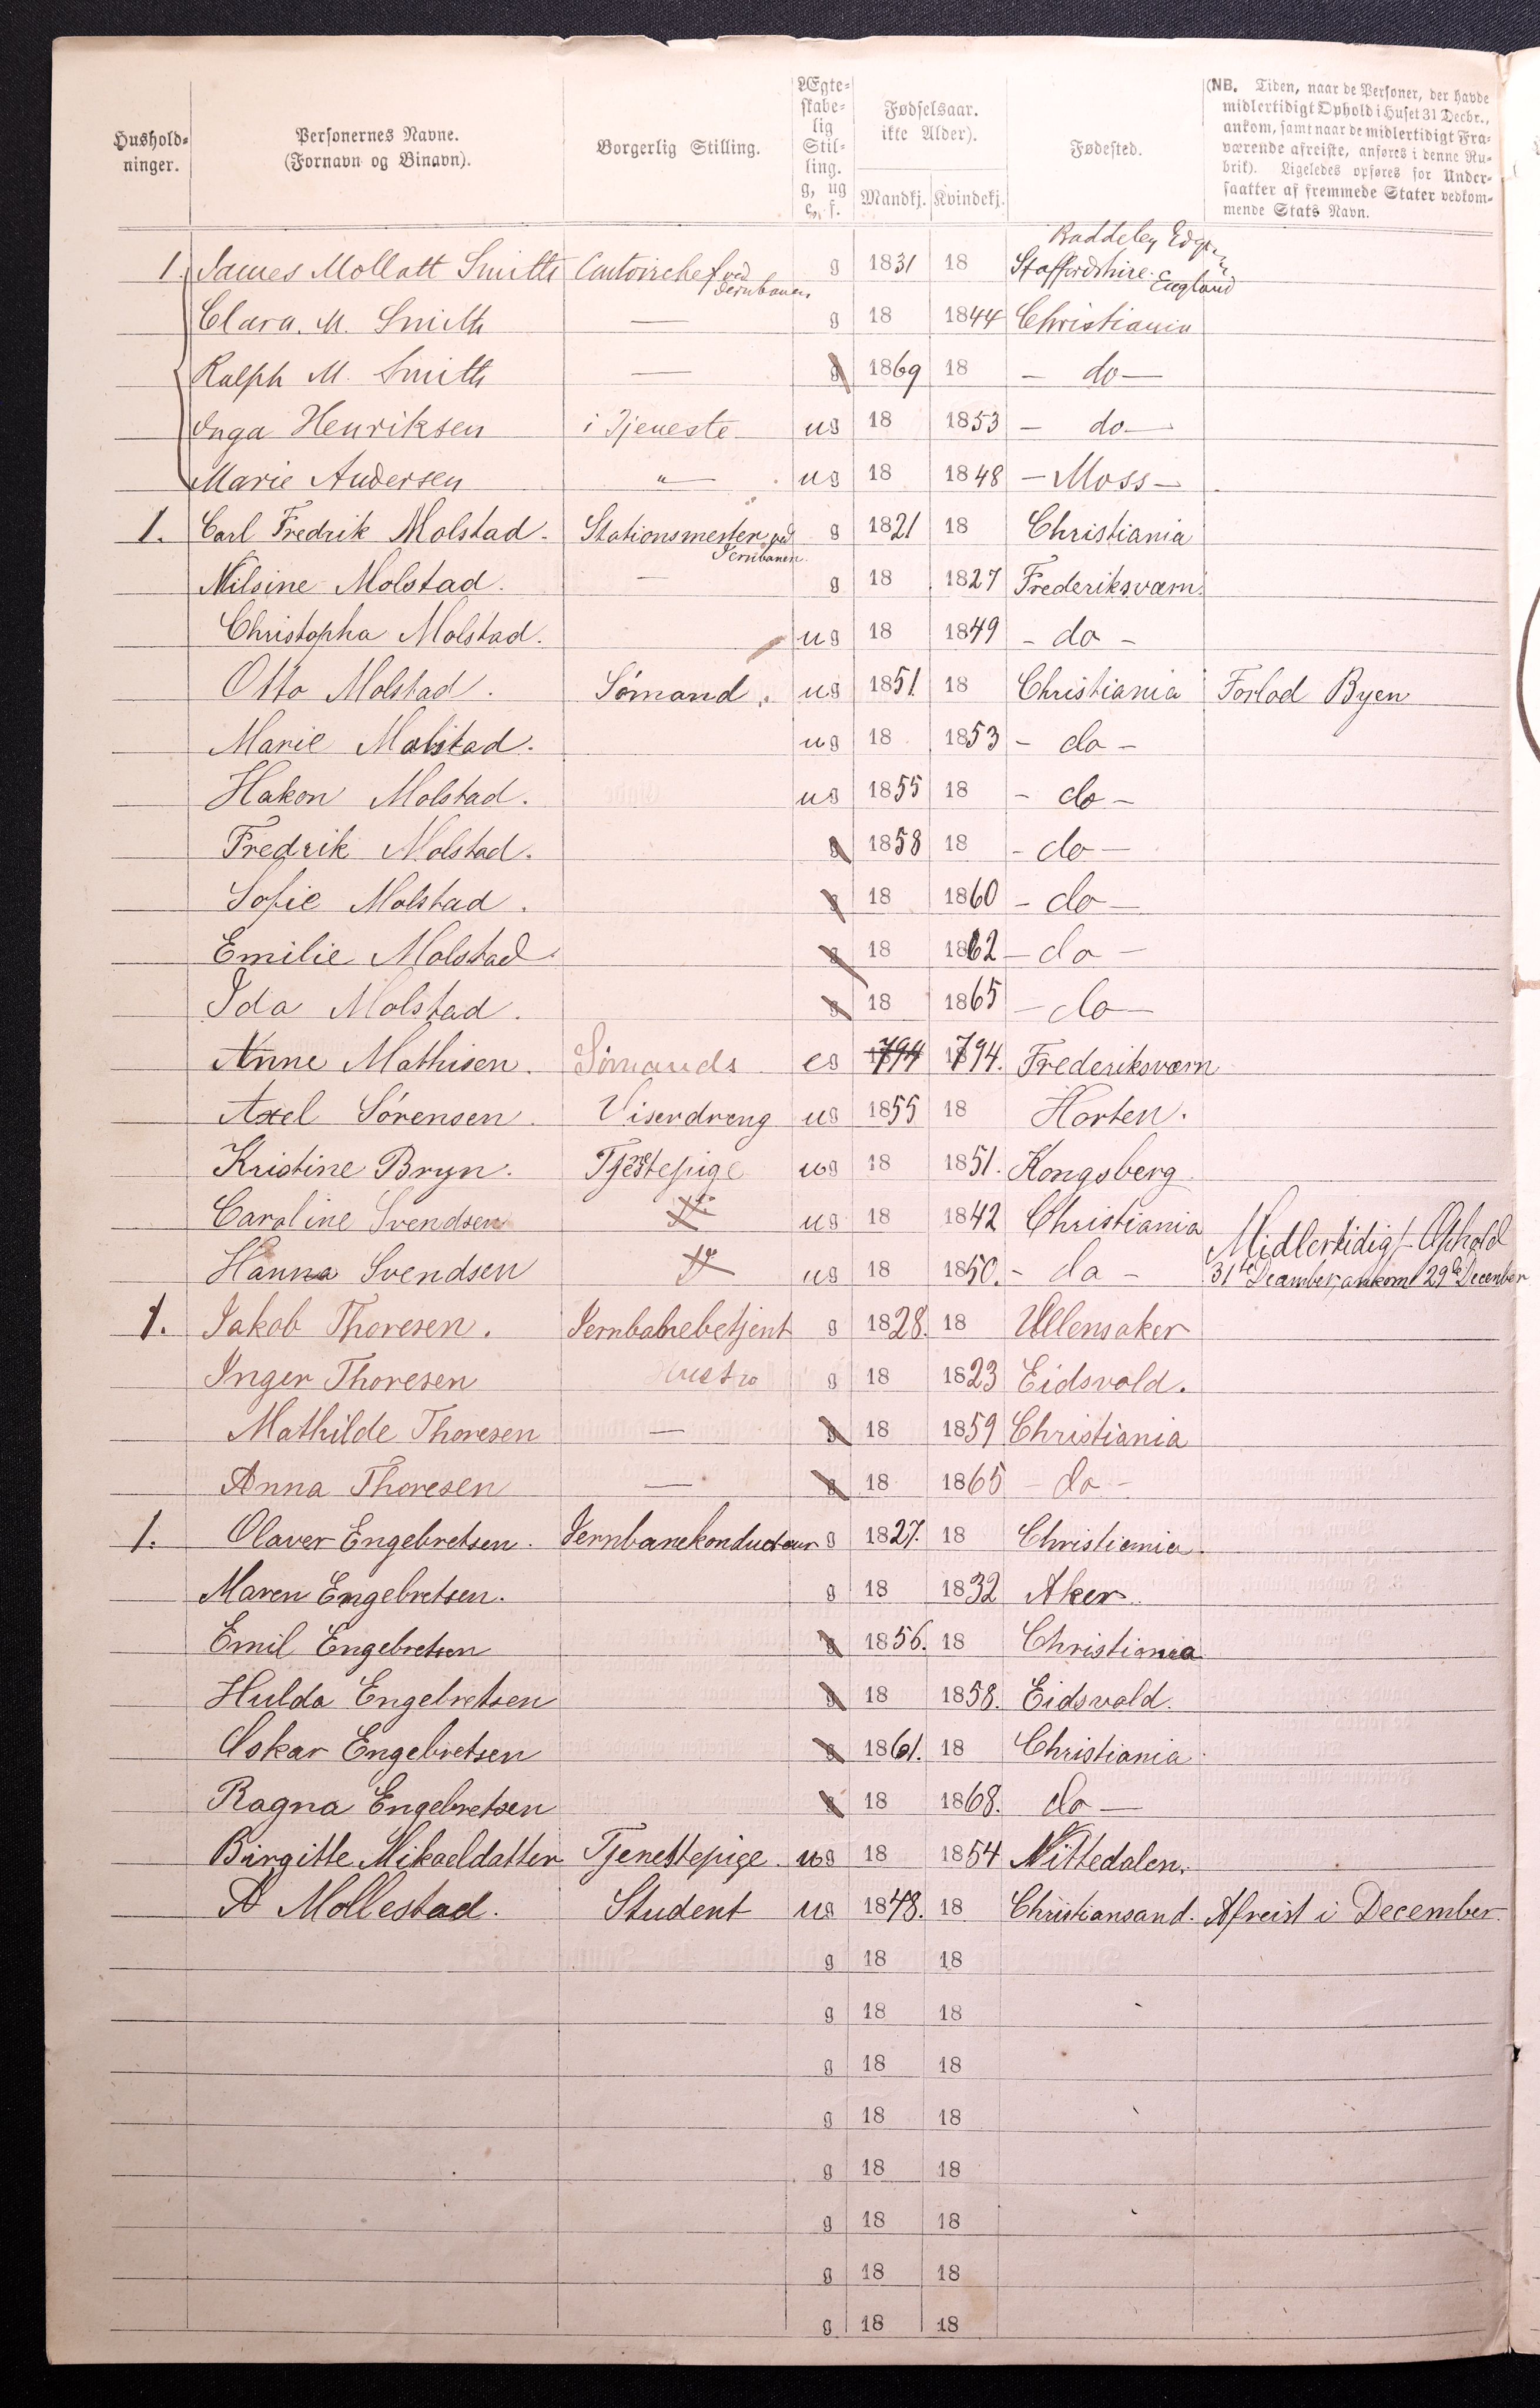 Hushold-
ninger.
Personernes Navne.
(Fornavn og Binavn).
Borgerlig Stilling.
Ægte-
skabe-
lig
Stil-
ling.
g, ug
e. f.
Fødselsaar.
ikke Alder).
Mandkj. Kvindekj.
Fødested.
(NB. Tiden, naar de Personer, der havde
midlertidigt Ophold i Huset 31 Decbr.,
ankom, samt naar de midlertidigt Fra-
værende afreiste, anføres i denne Ru-
brik). Ligeledes opføres for Under-
saatter af fremmede Stater vedkom-
mende Stats Navn.
Baddeley Edge
1. James Mollatt Smith Contoirchef ved g 1831 18 Staffordshire.
Jernbanen England
Clara. M. Smith — g 18 1844 Christiania
Ralph M. Smith — g 1869 18 — do —
Inga Henriksen i Tjeneste ug 18 1853 — do —
Marie Andersen " — ug 18 1848 — Moss —
1. Carl Fredrik Molstad. Stationsmester ved g 1821 18 Christiania
Jernbanen.
Nilsine Molstad. — g 18 1827 Frederiksværn.
Christopha Molstad. ug 18 1849 - do -
Otto Molstad. Sömand. ug 1851 18 Christiania Forlod Byen
Marie Molstad. ug 18 1853 - do -
Hakon Molstad. ug 1855 18 - do -
Fredrik Molstad. g 1858 18 - do -
Sofie Molstad. g 18 1860 - do -
Emilie Molstad g 18 1862 - do -
Ida Molstad. g 18 1865 - do -
Anne Mathisen. Sömands eg 1794 1794. Frederiksværn
Axel Sörensen. Viserdreng ug 1855 18 Horten.
Kristine Bryn. Tjenestepige ug 18 1851. Kongsberg
Caroline Svendsen ug 18 1842 Christiania Midlertidigt Ophold
Hanna Svendsen ug 18 1850. - do - 31te December, ankom 29de December
1. Jakob Thoresen. Jernbanebetjent g 1828. 18 Ullensaker
Inger Thoresen Hustro g 18 1823 Eidsvold.
Mathilde Thoresen — g 18 1859 Christiania
Anna Thoresen — g 18 1865 - do -
1. Olaver Engebretsen. Jernbanekonducteur g 1827. 18 Christiania.
Maren Engebretsen. g 18 1832 Aker.
Emil Engebretsen g 1856. 18 Christiania
Hulda Engebretsen g 18 1858. Eidsvold.
Oskar Engebretsen g 1861. 18 Christiania
Ragna Engebretsen g 18 1868. do —
Birgitte Mikaeldatter Tjenestepige. ug 18 1854 Nittedalen.
A Mollestad. Student ug 1848. 18 Christiansand. Afreist i December.
g 18 18
g 18 18
g 18 18
g 18 18
g 18 18
g 18 18
g 18 18
g 18 18